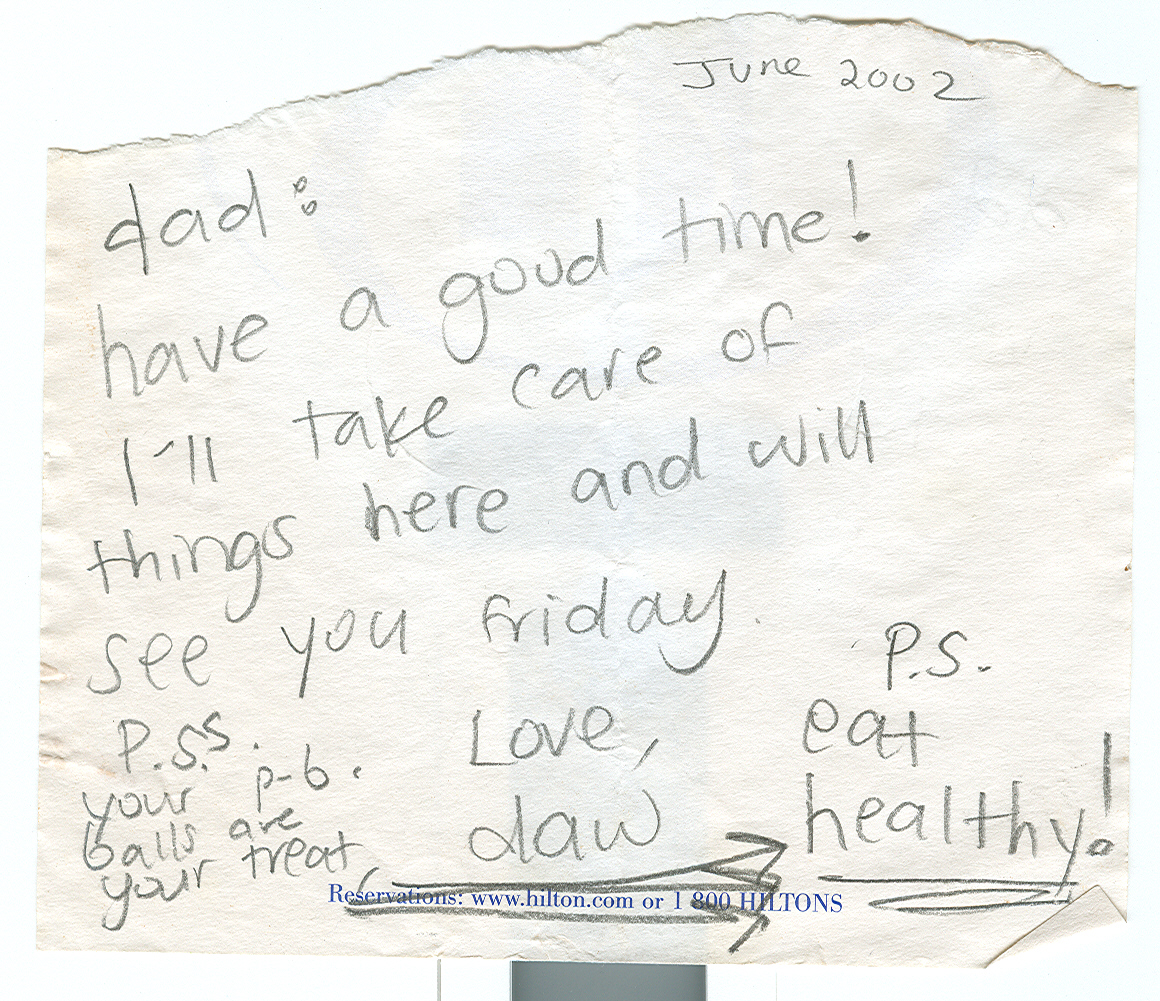 June 2002
dad:
have a good time!
I'll take care of
things here and will
see you friday.
Love,
daw
P.S.
eat
healthy!
P.S.S.
your p-b.
balls are
your treat
Reservations: www.hilton.com or 1 800 HILTONS